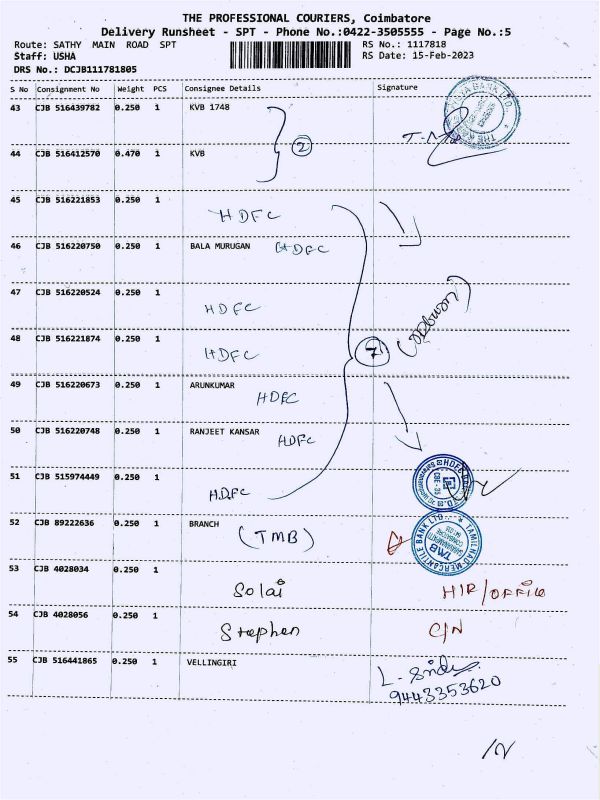 THE PROFESSIONAL COURIERS, Coimbatore
Delivery Runsheet - SPT - Phone No.:0422-3505555 - Page No.:5
Route: SATHY MAIN ROAD SPT RS No.: 1117818
Staff: USHA RS Date: 15-Feb-2023
DRS No.: DCJB111781805
S No Consignment No Weight PCS Consignee Details Signature
43 CJB 516439782 0.250 1 KVB 1748
44 CJB 516412570 0.470 1 KVB
2
45 CJB 516221853 0.250 1 HDFC
46 CJB 516220750 0.250 1 BALA MURUGAN HDFC
47 CJB 516220524 0.250 1 HDFC
48 CJB 516221874 0.250 1 HDFC
7
49 CJB 516220673 0.250 1 ARUNKUMAR HDFC
50 CJB 516220748 0.250 1 RANJEET KANSAR HDFC
51 CJB 515974449 0.250 1 HDFC
52 CJB 89222636 0.250 1 BRANCH (TMB)
TAMILNAD MERCANTILE BANK LTD.
TMB
53 CJB 4028034 0.250 1 Solai HIR/OFFICE
54 CJB 4028056 0.250 1 Stephen C/N
55 CJB 516441865 0.250 1 VELLINGIRI
9443353620